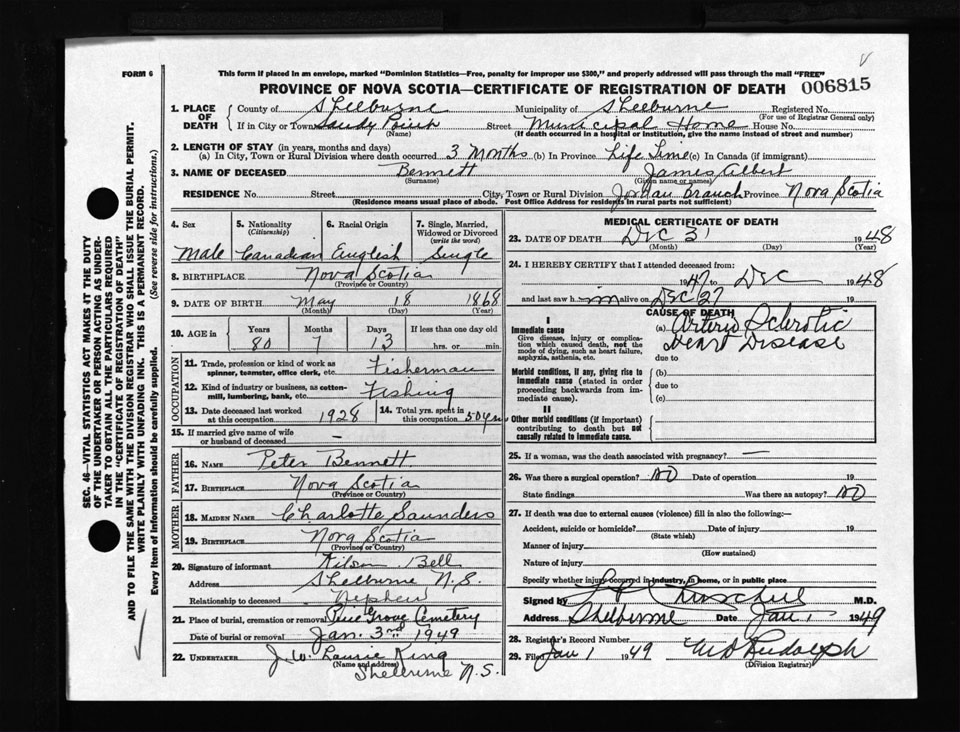 FORM 6
This form if placed in an envelope, marked "Dominion Statistics—Free, penalty for improper use $300," and properly addressed will pass through the mail "FREE"
PROVINCE OF NOVA SCOTIA—CERTIFICATE OF REGISTRATION OF DEATH 006815
1. PLACE OF DEATH
County of Shelburne Municipality of Shelburne Registered No.
(For use of Registrar General only)
If in City or Town Sandy Point Street Municipal Home House No.
(Name) (If death occurred in a hospital or institution, give the name instead of street and number)
2. LENGTH OF STAY (in years, months and days)
(a) In City, Town or Rural Division where death occurred 3 Months (b) In Province Life Time (c) In Canada (if immigrant)
3. NAME OF DECEASED Bennett James Albert
(Surname) (Given name or names)
RESIDENCE No. Street City, Town or Rural Division Jordan Branch Province Nova Scotia
(Residence means usual place of abode. Post Office Address for residents in rural parts not sufficient)
4. Sex 5. Nationality (Citizenship) 6. Racial Origin 7. Single, Married, Widowed or Divorced (write the word)
Male Canadian English Single
8. BIRTHPLACE Nova Scotia
(Province or Country)
9. DATE OF BIRTH May 18 1868
(Month) (Day) (Year)
10. AGE in Years Months Days If less than one day old
80 7 13 hrs. or min.
OCCUPATION
11. Trade, profession or kind of work as spinner, teamster, office clerk, etc. Fisherman
12. Kind of industry or business, as cotton-mill, lumbering, bank, etc. Fishing
13. Date deceased last worked at this occupation 1928 14. Total yrs. spent in this occupation 50 yrs
15. If married give name of wife or husband of deceased —
FATHER
16. NAME Peter Bennett
17. BIRTHPLACE Nova Scotia
(Province or Country)
MOTHER
18. MAIDEN NAME Charlotte Saunders
19. BIRTHPLACE Nova Scotia
(Province or Country)
20. Signature of informant Bell
Address Shelburne N.S.
Relationship to deceased Nephew
21. Place of burial, cremation or removal Pine Grove Cemetery
Date of burial or removal Jan. 3rd 1949
22. UNDERTAKER J. W. Laurie King
(Name and address) Shelburne N.S.
MEDICAL CERTIFICATE OF DEATH
23. DATE OF DEATH Dec 31 1948
(Month) (Day) (Year)
24. I HEREBY CERTIFY that I attended deceased from:
1947 to Dec 1948
and last saw him alive on Dec 27 19
CAUSE OF DEATH
I
Immediate cause
Give disease, injury or complication which caused death, not the mode of dying, such as heart failure, asphyxia, asthenia, etc.
(a) Arterio Sclerotic
Heart Disease
due to
Morbid conditions, if any, giving rise to immediate cause (stated in order proceeding backwards from immediate cause).
(b)
due to
(c)
II
Other morbid conditions (if important) contributing to death but not causally related to immediate cause.
25. If a woman, was the death associated with pregnancy? —
26. Was there a surgical operation? No Date of operation 19
State findings Was there an autopsy? No
27. If death was due to external causes (violence) fill in also the following:—
Accident, suicide or homicide? Date of injury 19
(State which)
Manner of injury
(How sustained)
Nature of injury
Specify whether injury occurred in industry, in home, or in public place
Signed by M.D.
Address Shelburne Date Jan 1 1949
28. Registrar's Record Number
29. Filed Jan 1 1949 Rudolph
(Division Registrar)
SEC. 46—VITAL STATISTICS ACT MAKES IT THE DUTY
OF THE UNDERTAKER OR PERSON ACTING AS UNDER-
TAKER TO OBTAIN ALL THE PARTICULARS REQUIRED
IN THE "CERTIFICATE OF REGISTRATION OF DEATH"
AND TO FILE THE SAME WITH THE DIVISION REGISTRAR WHO SHALL ISSUE THE BURIAL PERMIT.
WRITE PLAINLY WITH UNFADING INK. THIS IS A PERMANENT RECORD.
Every item of information should be carefully supplied. (See reverse side for instructions.)